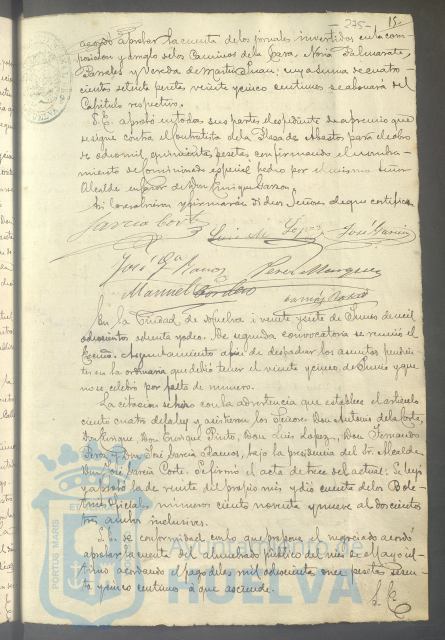 235- 15-
acordó aprobar la cuenta de los jornales invertidos en la com-
posicion y arreglo de los Caminos de la Vera, Nova Palmarate,
Parrales y Vereda de Martin Juan; cuya suma de cuatro
cientas setenta pesetas veinte y cinco centimos se abonará del
Capitulo respectivo.
S.E. aprobó en todas sus partes el espediente de apremio que
se sigue contra el contratista de la Plaza de Abastos para el cobro
de dos mil quinientas pesetas confirmando el nombra-
miento de comisionado especial hecho por el mismo Señor
Alcalde en favor de Don Enrique
Asi lo resolvieron y firmaran dichos Señores de que certifico.
Garcia Cort
Luis M. Lopez José Garcia
José Gª Ramos Perez Marquez
Manuel Cordero
En la Ciudad de Huelva á veinte y siete de Junio de mil
ochocientos ochenta y dos. De segunda convocatoria se reunió el
Excmo. Ayuntamiento á fin de despachar los asuntos pendien-
tes en la ordinaria que debió tener el veinte y cinco de Junio y que
no se celebró por falta de numero.
La citacion se hizo con la advertencia que establece el articulo
ciento cuatro de la ley y asistieron los Señores Don Antonio de la Corte,
Don Enrique Pinto, Don Luis Lopez, Don Fernando
Perez y Don José Garcia Ramos, bajo la presidencia del Sr. Alcalde
Don José Garcia Corte. Se firmó el acta de trece del actual. Se leyó
y aprobó la de veinte del propio mes y dió cuenta de los Bole-
tines Oficiales numeros ciento noventa y nueve al doscientos
tres ambos inclusives.
S.E. de conformidad con lo que propone el negociado acordó
aprobar la cuenta del alumbrado público del mes de Mayo úl-
timo acordando el pago de las mil ochocientas once pesetas
y cinco centimos á que asciende.
PORTUS MARIS
HUELVA